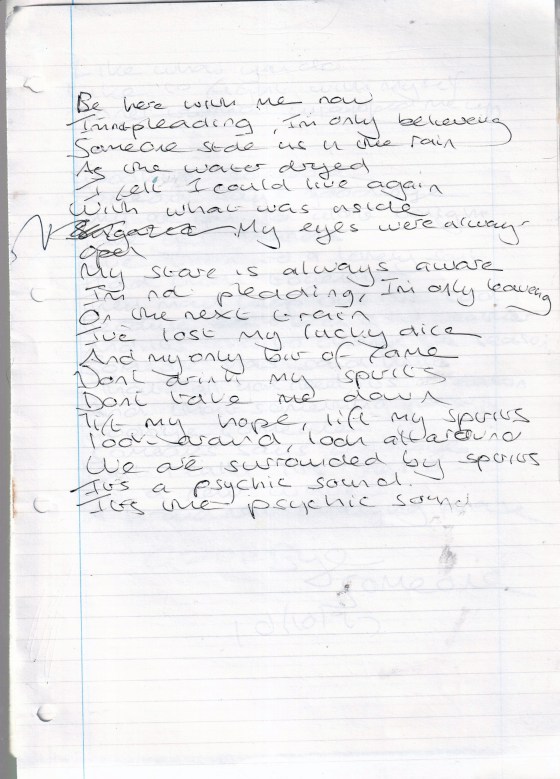 Be here with me now
I'm not pleading, I'm only believing
Someone stole us in the rain
As the water dryed
I felt I could live again
With what was inside
My eyes were always
open
My stare is always aware
I'm not pleading, I'm only leaving
On the next train
I've lost my lucky dice
And my only bit of fame
Don't drink my spirits
Don't take me down
lift my hope, lift my spirits
look around, look all around
We are surrounded by spirits
It's a psychic sound.
It's the psychic sound